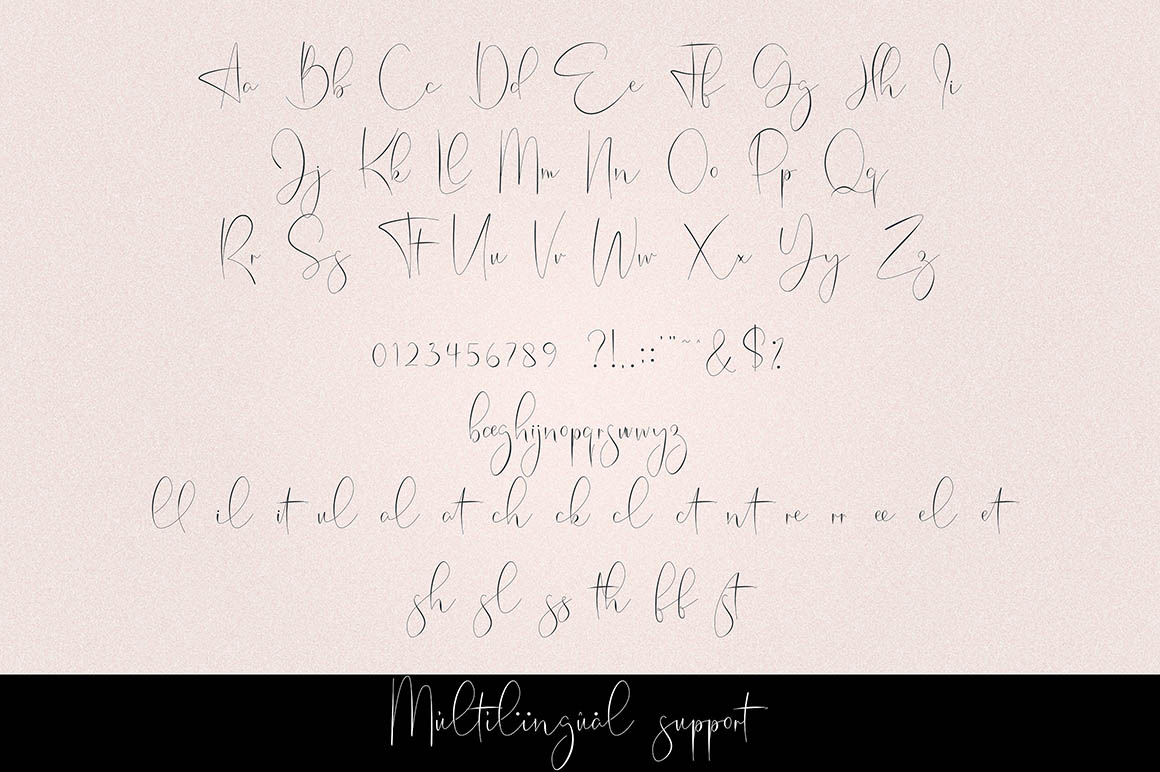 Aa Bb Cc Dd Ee Ff Gg Hh Ii
Jj Kk Ll Mm Nn Oo Pp Qq
Rr Ss Tt Uu Vv Ww Xx Yy Zz
0123456789 ?!.,:;'"~^&$%
bceghijnopqrsuvwyz
ll il it ul al at ch ck cl ct nt re rr ee el et
sh sl ss th ff st
Mùltilïïngûäl support